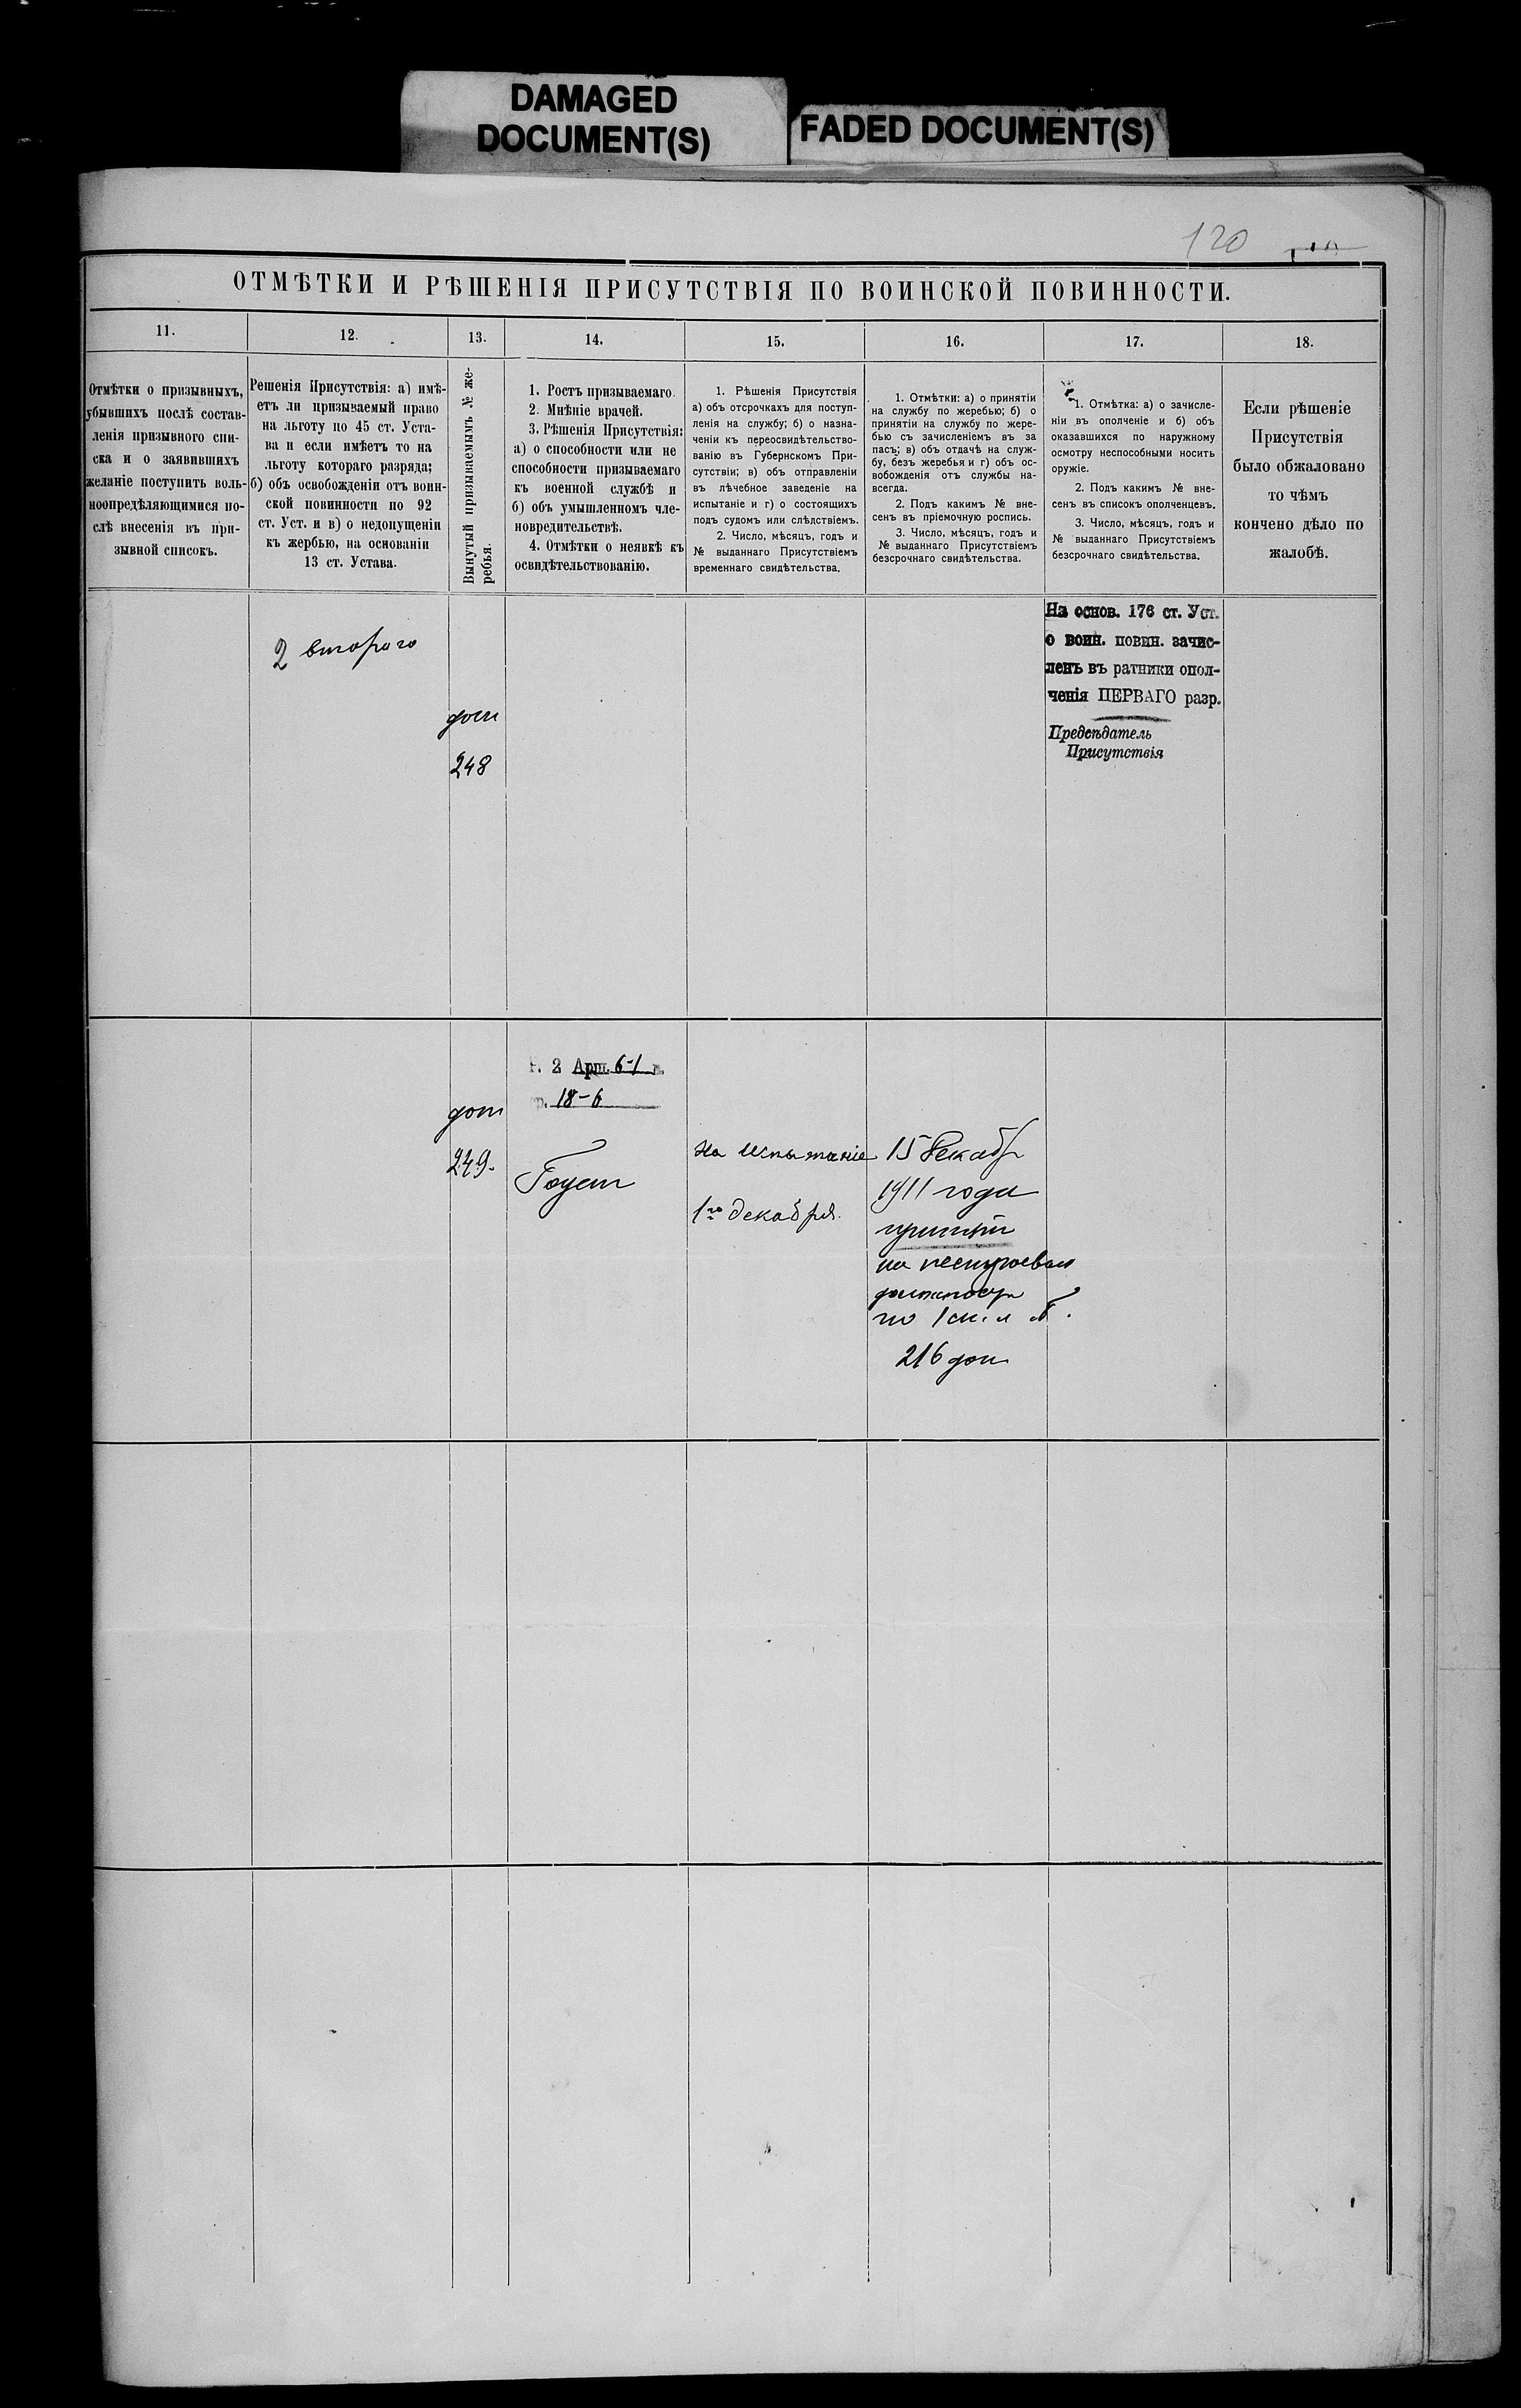 DAMAGED
DOCUMENT(S)
FADED DOCUMENT(S)
120
ОТМѢТКИ И РѢШЕНІЯ ПРИСУТСТВІЯ ПО ВОИНСКОЙ ПОВИННОСТИ.
11.
12.
13.
14.
15.
16.
17.
18.
Отмѣтки о призывныхъ,
убывшихъ послѣ состав-
ленія призывного спи-
ска и о заявившихъ
желаніе поступить воль-
ноопредѣляющимися по-
слѣ внесенія въ при-
зывной списокъ.
Решенія Присутствія: а) имѣ-
етъ ли призываемый право
на льготу по 45 ст. Уста-
ва и если имѣетъ то на
льготу котораго разряда;
б) объ освобожденіи отъ воин-
ской повинности по 92
ст. Уст. и в) о недопущеніи
къ жербью, на основаніи
13 ст. Устава.
Вынутый призываемымъ № же-
ребья.
1. Ростъ призываемаго.
2. Мнѣніе врачей.
3. Рѣшенія Присутствія:
а) о способности или не
способности призываемаго
къ военной службѣ и
б) объ умышленномъ чле-
новредительствѣ.
4. Отмѣтки о неявкѣ къ
освидѣтельствованію.
1. Рѣшенія Присутствія
а) объ отсрочкахъ для поступ-
ленія на службу; б) о назна-
ченіи къ переосвидѣтельство-
ванію въ Губернскомъ При-
сутствіи; в) объ отправленіи
въ лѣчебное заведеніе на
испытаніе и г) о состоящихъ
подъ судомъ или слѣдствіемъ.
2. Число, мѣсяцъ, годъ и
№ выданнаго Присутствіемъ
временнаго свидѣтельства.
1. Отмѣтки: а) о принятіи
на службу по жеребью; б) о
принятіи на службу по жере-
бью съ зачисленіемъ въ за
пасъ; в) объ отдачѣ на служ-
бу, безъ жеребья и г) объ ос-
вобожденія отъ службы на-
всегда.
2. Подъ какимъ № вне-
сенъ въ пріемочную роспись.
3. Число, мѣсяцъ, годъ и
№ выданнаго Присутствіемъ
безсрочнаго свидѣтельства.
1. Отмѣтка: а) о зачисле-
ніи въ ополченіе и б) объ
оказавшихся по наружному
осмотру неспособными носить
оружіе.
2. Подъ какимъ № вне-
сенъ въ списокъ ополченцевъ.
3. Число, мѣсяцъ, годъ и
№ выданнаго Присутствіемъ
безсрочнаго свидѣтельства.
Если рѣшеніе
Присутствія
было обжаловано
то чѣмъ
кончено дѣло по
жалобѣ.
2 второго
доп
248
На основ. 176 ст. Уст.
о воин. повин. зачис-
ленъ въ ратники опол-
ченія ПЕРВАГО разр.
Предсѣдатель
Присутствія
доп
249.
2 Арш. 6-1
18-6
Годен
На испытаніе
1го декабря.
15 Декабр
1911 года
принят
на нестроевую
должность
по 1
216 доп